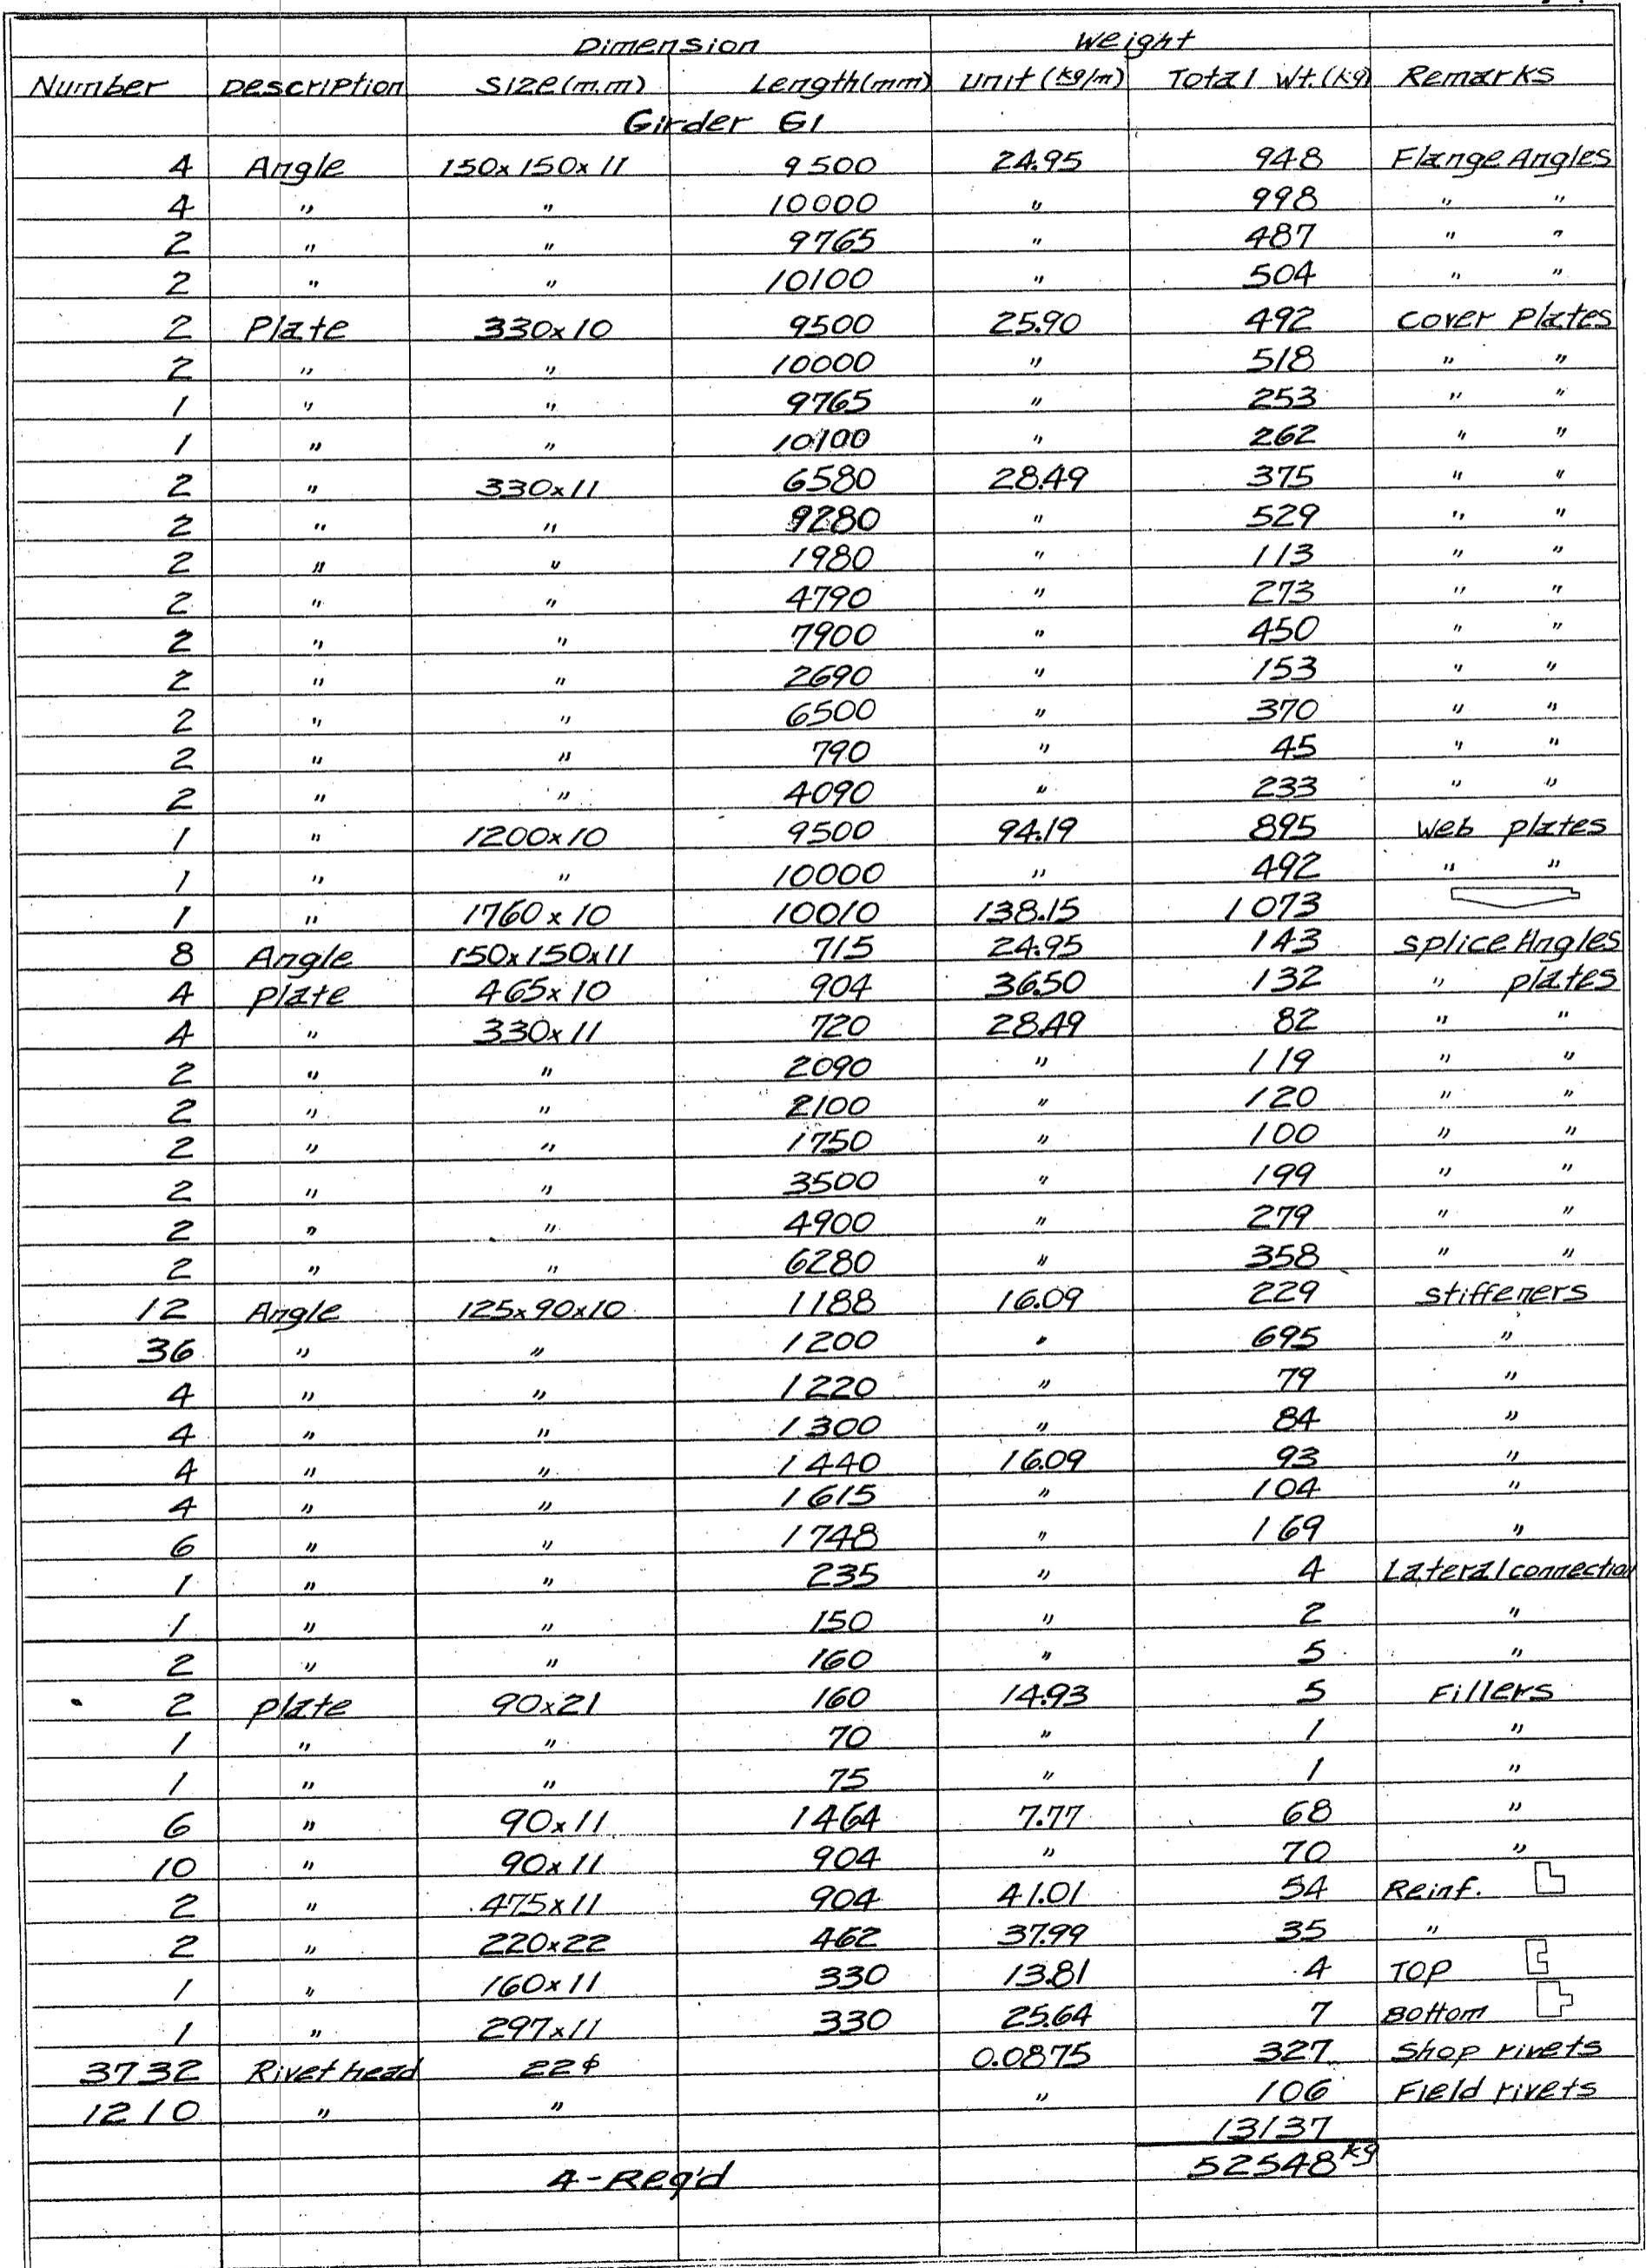 Dimension Weight
Number Description Size(m.m) Length(mm) Unit (kg/m) Total Wt.(kg) Remarks
Girder G1
4 Angle 150x150x11 9500 24.95 948 Flange Angles
4 " " 10000 " 998 " "
2 " " 9765 " 487 " "
2 " " 10100 " 504 " "
2 Plate 330x10 9500 25.90 492 cover Plates
2 " " 10000 " 518 " "
1 " " 9765 " 253 " "
1 " " 10100 " 262 " "
2 " 330x11 6580 28.49 375 " "
2 " " 9280 " 529 " "
2 " " 1980 " 113 " "
2 " " 4790 " 273 " "
2 " " 7900 " 450 " "
2 " " 2690 " 153 " "
2 " " 6500 " 370 " "
2 " " 790 " 45 " "
2 " " 4090 " 233 " "
1 " 1200x10 9500 94.19 895 Web plates
1 " " 10000 " 492 " "
1 " 1760x10 10010 138.15 1073
8 Angle 150x150x11 715 24.95 143 splice Angles
4 plate 465x10 904 36.50 132 " plates
4 " 330x11 720 28.49 82 " "
2 " " 2090 " 119 " "
2 " " 2100 " 120 " "
2 " " 1750 " 100 " "
2 " " 3500 " 199 " "
2 " " 4900 " 279 " "
2 " " 6280 " 358 " "
12 Angle 125x90x10 1188 16.09 229 stiffeners
36 " " 1200 " 695 "
4 " " 1220 " 79 "
4 " " 1300 " 84 "
4 " " 1440 16.09 93 "
4 " " 1615 " 104 "
6 " " 1748 " 169 "
1 " " 235 " 4 Lateral connection
1 " " 150 " 2 "
2 " " 160 " 5 "
2 plate 90x21 160 14.93 5 Fillers
1 " " 70 " 1 "
1 " " 75 " 1 "
6 " 90x11 1464 7.77 68 "
10 " 90x11 904 " 70 "
2 " 475x11 904 41.01 54 Reinf.
2 " 220x22 462 37.99 35 "
1 " 160x11 330 13.81 4 TOP
1 " 297x11 330 25.64 7 Bottom
3732 Rivet head 22φ 0.0875 327 Shop rivets
1210 " " " 106 Field rivets
13137
4-Req'd 52548 kg